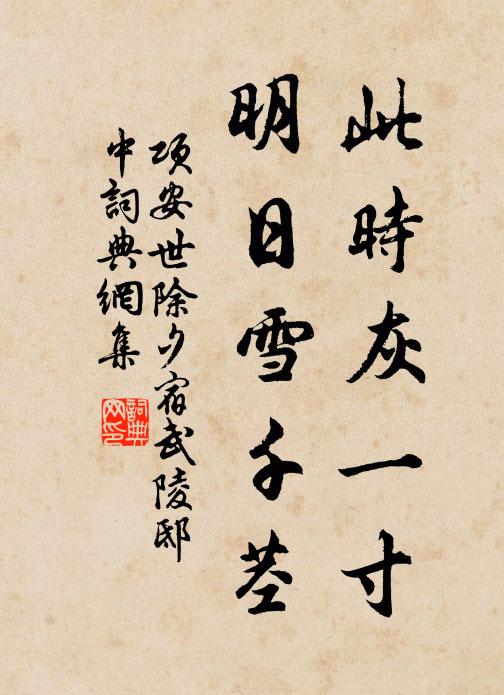 此時灰一寸
明日雪千茎
項安世除夕宿武陵邸
中詞典網集
詞典
网印